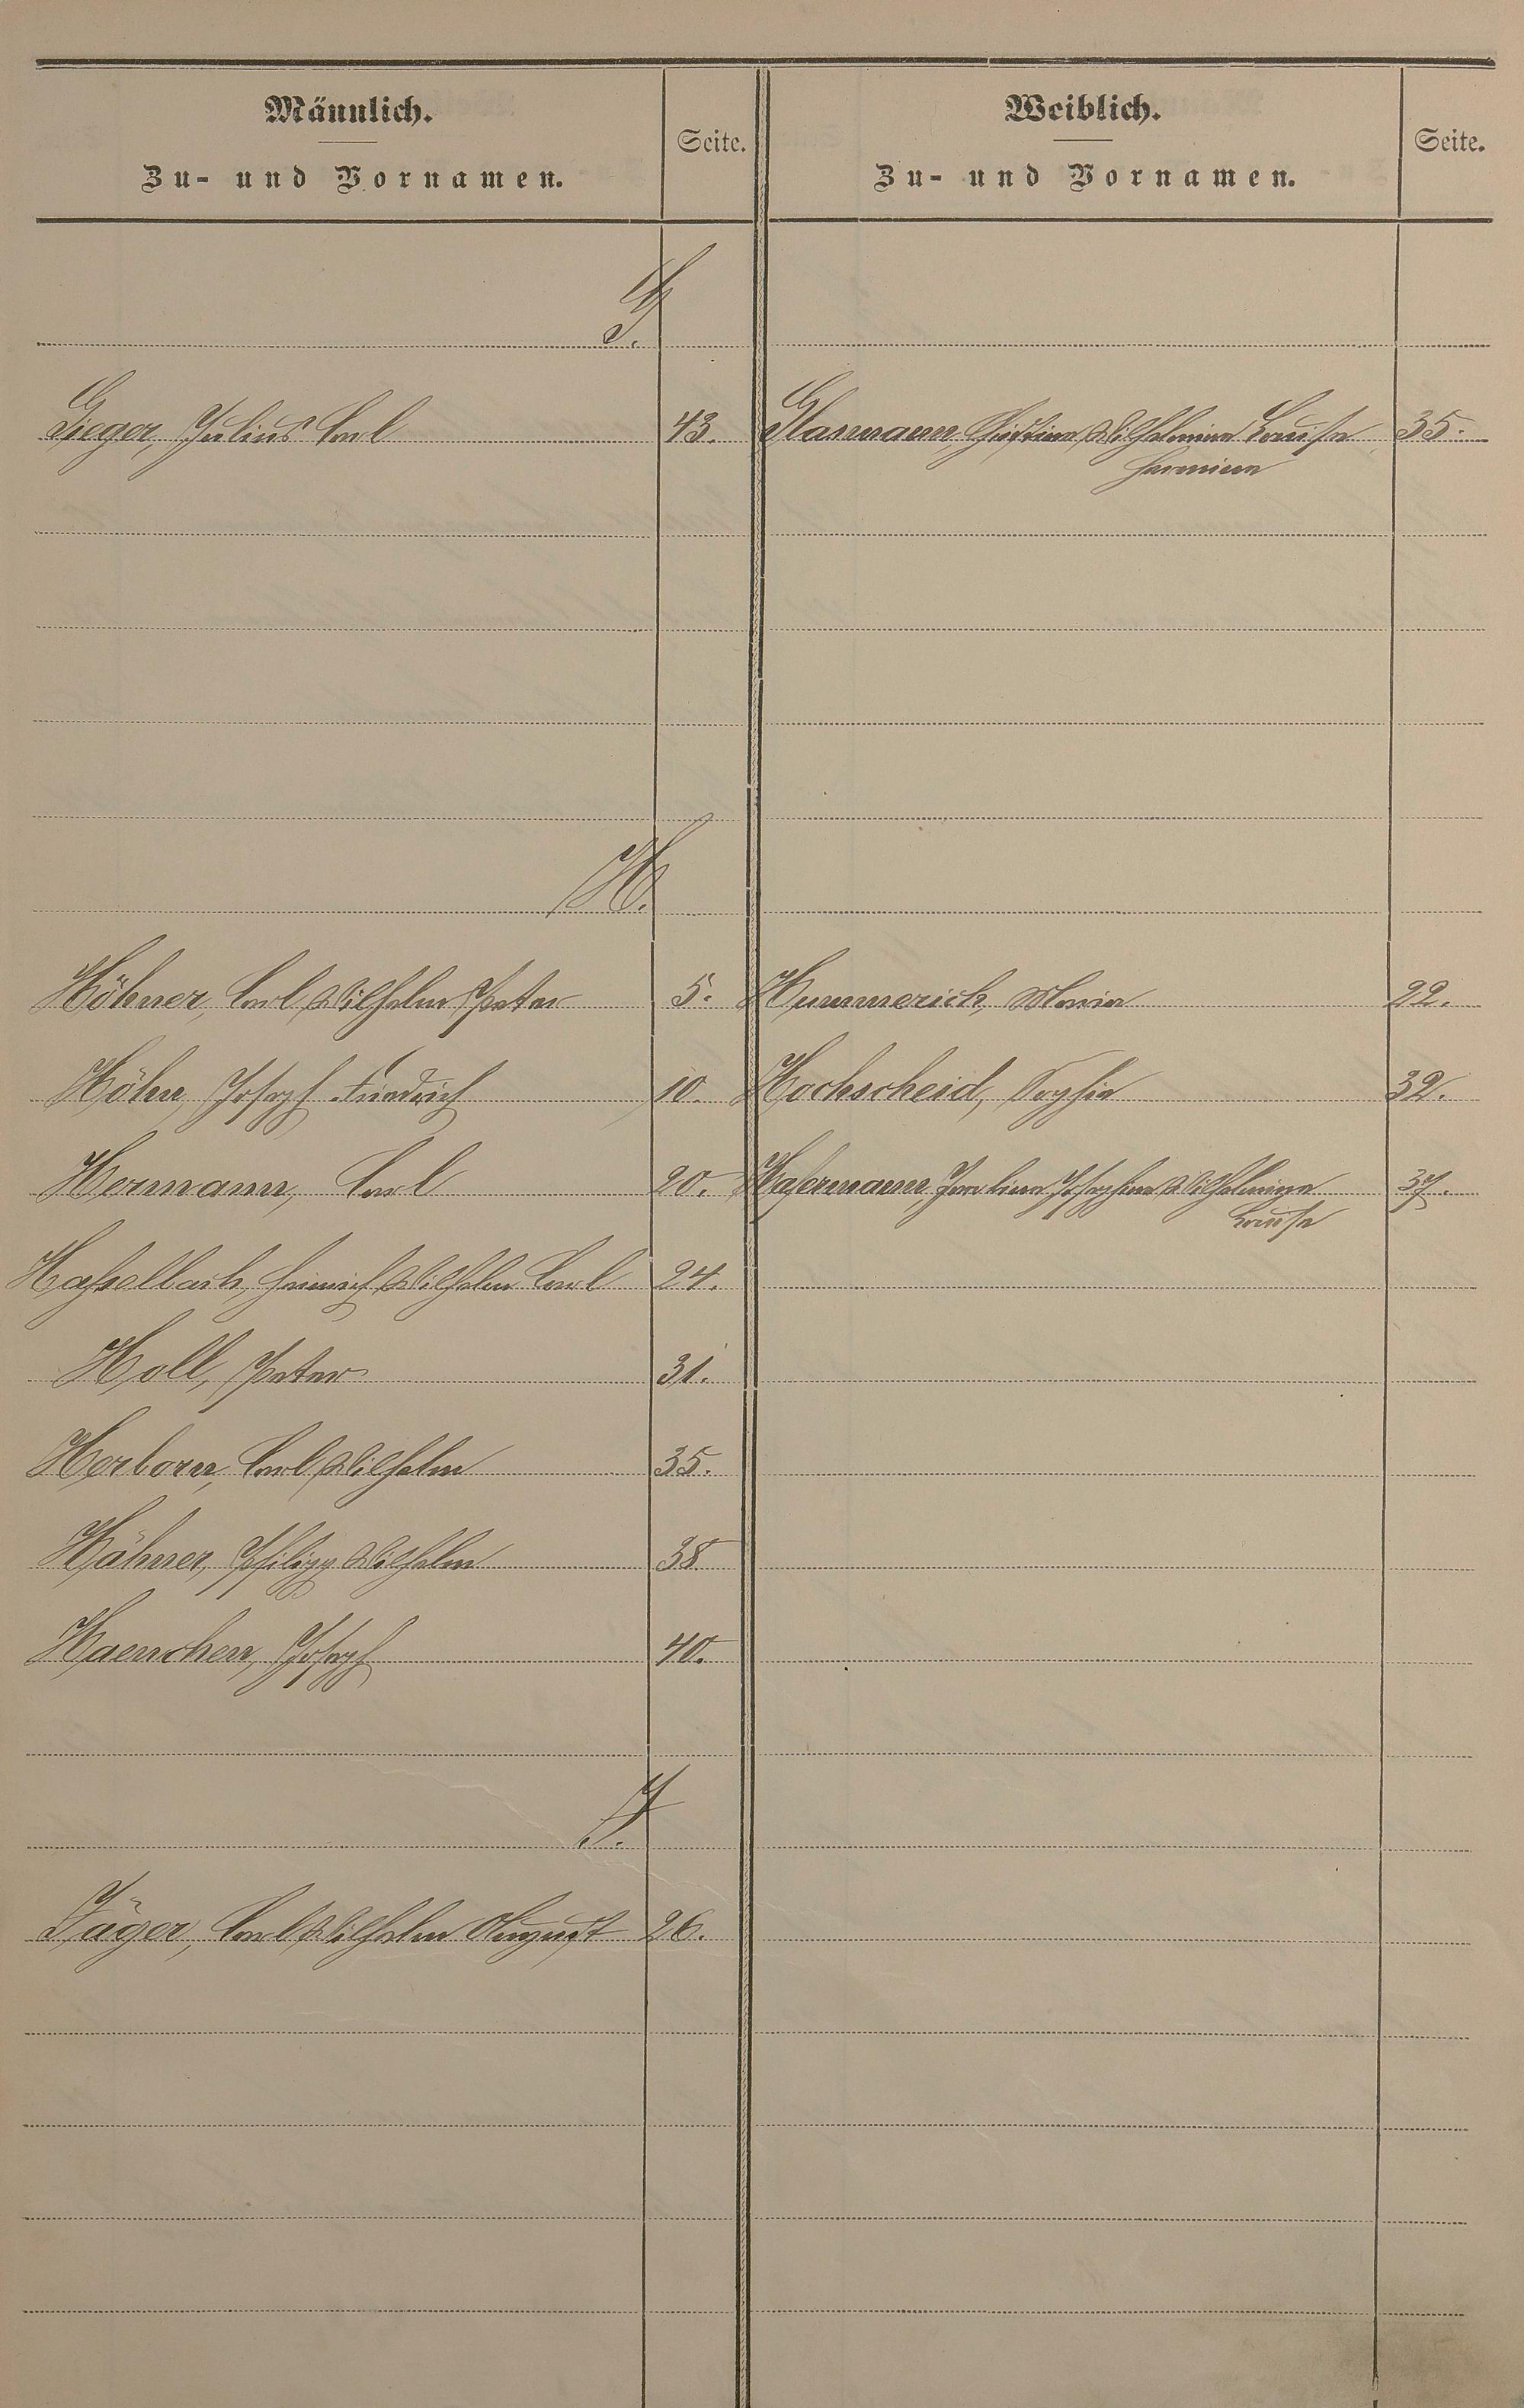 Männlich.
Zu- und Vornamen.
Seite.
Weiblich.
Zu- und Vornamen.
Seite.
G.
Gieger, Julius Carl 43.
Glasmann, Christine Wilhelmine Louise 35.
Hermine
H.
Höhner, Carl Wilhelm Peter 5.
Hummerich, Maria 22.
Höhn, Joseph Friedrich 10.
Hochscheid, Sophia 32.
Hermann, Carl 20.
Hafermann, Josephine Wilhelmine 37.
Louise
Haßelbach, Heinrich Wilhelm Carl 24.
Holl, Peter 31.
Herborn, Carl Wilhelm 35.
Hähner, Philipp Wilhelm 38.
Haenchen, Joseph 40.
J.
Jäger, Carl Wilhelm August 26.